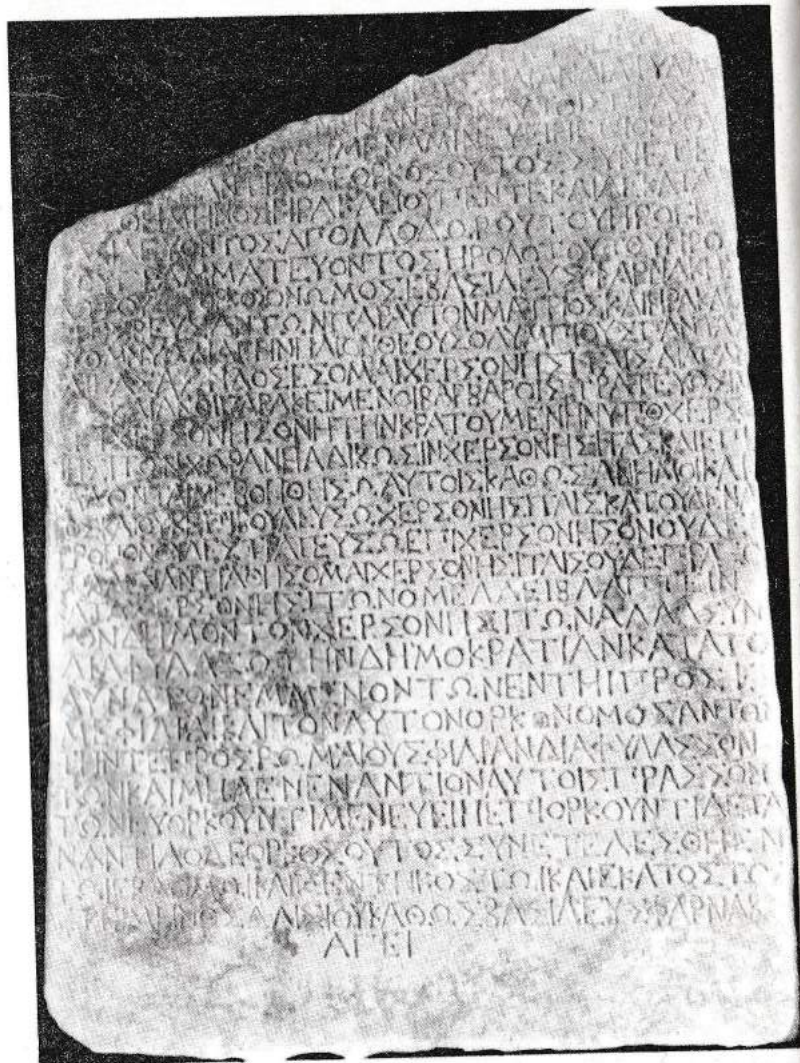 ΝΑΝΤΙΟΝΑΥΤΟΙΣΠΡΑΣ
ΟΥΣΙΜΕΝΑΜΙΝΕΥΕΙΗΕΠΙΟΡΚΟΥ
ΑΝΤΙΑΟΔΕΟΡΚΟΣΟΥΤΟΣΣΥΝΕΤΕ
ΘΗΜΗΝΟΣΗΡΑΚΛΕΙΟΥΠΕΝΤΕΚΑΙΔΕΚΑΤΑ
ΛΕΥΟΝΤΟΣΑΠΟΛΛΟΔΩΡΟΥΤΟΥΗΡΟΓΕ
ΜΜΑΤΕΥΟΝΤΟΣΗΡΟΔΟΤΟΥΤΟΥΗΡΟ
ΡΚΟΣΟΝΩΜΟΣΕΒΑΣΙΛΕΥΣΦΑΡΝΑΚΗΣ
ΡΕΣΒΕΥΣΑΝΤΩΝΠΑΡΑΥΤΟΝΜΑΤΡΙΟΣΚΑΙΗΡΑΚΛΕ
ΟΜΝΥΩΔΙΑΓΗΝΗΛΙΟΝΘΕΟΥΣΟΛΥΜΠΙΟΥΣΠΑΝΤΑ
ΠΑΣΑΣΦΙΛΟΣΕΣΟΜΑΙΧΕΡΣΟΝΗΣΙΤΑΙΣΔΙΑΠΑΝ
ΚΑΙΑΝΟΙΠΑΡΑΚΕΙΜΕΝΟΙΒΑΡΒΑΡΟΙΣΤΡΑΤΕΥΩΣΙΝ
ΧΕΡΣΟΝΗΣΟΝΗΤΗΝΚΡΑΤΟΥΜΕΝΗΝΥΠΟΧΕΡΣΟ
ΝΗΣΙΤΩΝΧΩΡΑΝΗΑΔΙΚΩΣΙΝΧΕΡΣΟΝΗΣΙΤΑΣΚΑΙΕΠΙ
ΚΑΛΩΝΤΑΙΜΕΒΟΗΘΗΣΩΑΥΤΟΙΣΚΑΘΩΣΑΝΗΙΜΟΙΚΑΙ
ΡΟΣΚΑΙΟΥΚΕΠΙΒΟΥΛΕΥΣΩΧΕΡΣΟΝΗΣΙΤΑΙΣΚΑΤΟΥΔΕΝΑ
ΤΡΟΠΟΝΟΥΔΕΣΤΡΑΤΕΥΣΩΕΠΙΧΕΡΣΟΝΗΣΟΝΟΥΔΕ
ΕΝΑΝΤΙΑΘΗΣΟΜΑΙΧΕΡΣΟΝΗΣΙΤΑΙΣΟΥΔΕΠΡΑΞΩ
ΚΑΤΑΧΕΡΣΟΝΗΣΙΤΩΝΟΜΕΛΛΕΙΒΛΑΠΤΕΙΝ
ΤΟΝΔΗΜΟΝΤΟΝΧΕΡΣΟΝΗΣΙΤΩΝΑΛΛΑΣΥΝ
ΔΙΑΦΥΛΑΞΩΤΗΝΔΗΜΟΚΡΑΤΙΑΝΚΑΤΑΤΟ
ΔΥΝΑΤΟΝΕΜΜΕΝΟΝΤΩΝΕΝΤΗΙΠΡΟΣΕ
ΜΕΦΙΛΙΑΙΚΑΙΤΟΝΑΥΤΟΝΟΡΚΟΝΟΜΟΣΑΝΤΩΝ
ΤΗΝΤΕΠΡΟΣΡΩΜΑΙΟΥΣΦΙΛΙΑΝΔΙΑΦΥΛΑΣΣΟΝ
ΤΩΝΚΑΙΜΗΔΕΝΕΝΑΝΤΙΟΝΑΥΤΟΙΣΠΡΑΣΣΟΝ
ΤΩΝΕΥΟΡΚΟΥΝΤΙΜΕΝΕΥΕΙΗΕΠΙΟΡΚΟΥΝΤΙΔΕΤΑ
ΝΑΝΤΙΑΟΔΕΟΡΚΟΣΟΥΤΟΣΣΥΝΕΤΕΛΕΣΘΗΕΝ
ΤΩΙΕΒΔΟΜΩΙΚΑΙΠΕΝΤΗΚΟΣΤΩΙΚΑΙΕΚΑΤΟΣΤΩ
ΕΤΕΙΜΗΝΟΣΔΑΙΣΙΟΥΚΑΘΩΣΒΑΣΙΛΕΥΣΦΑΡΝΑΚ
ΑΓΕΙ